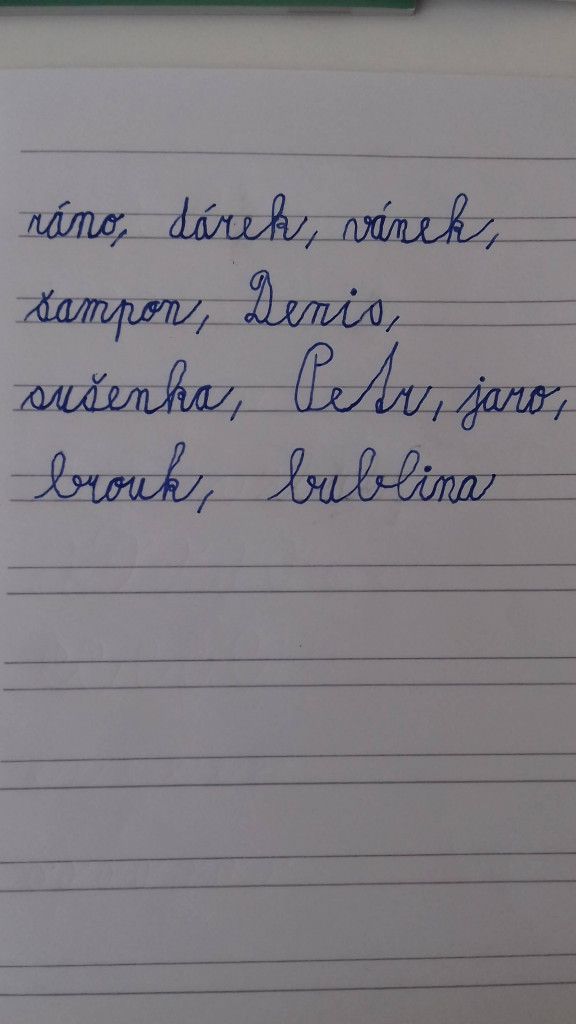 ráno, dárek, vánek,
šampon, Denis,
sušenka, Petr, jaro,
brouk, bublina